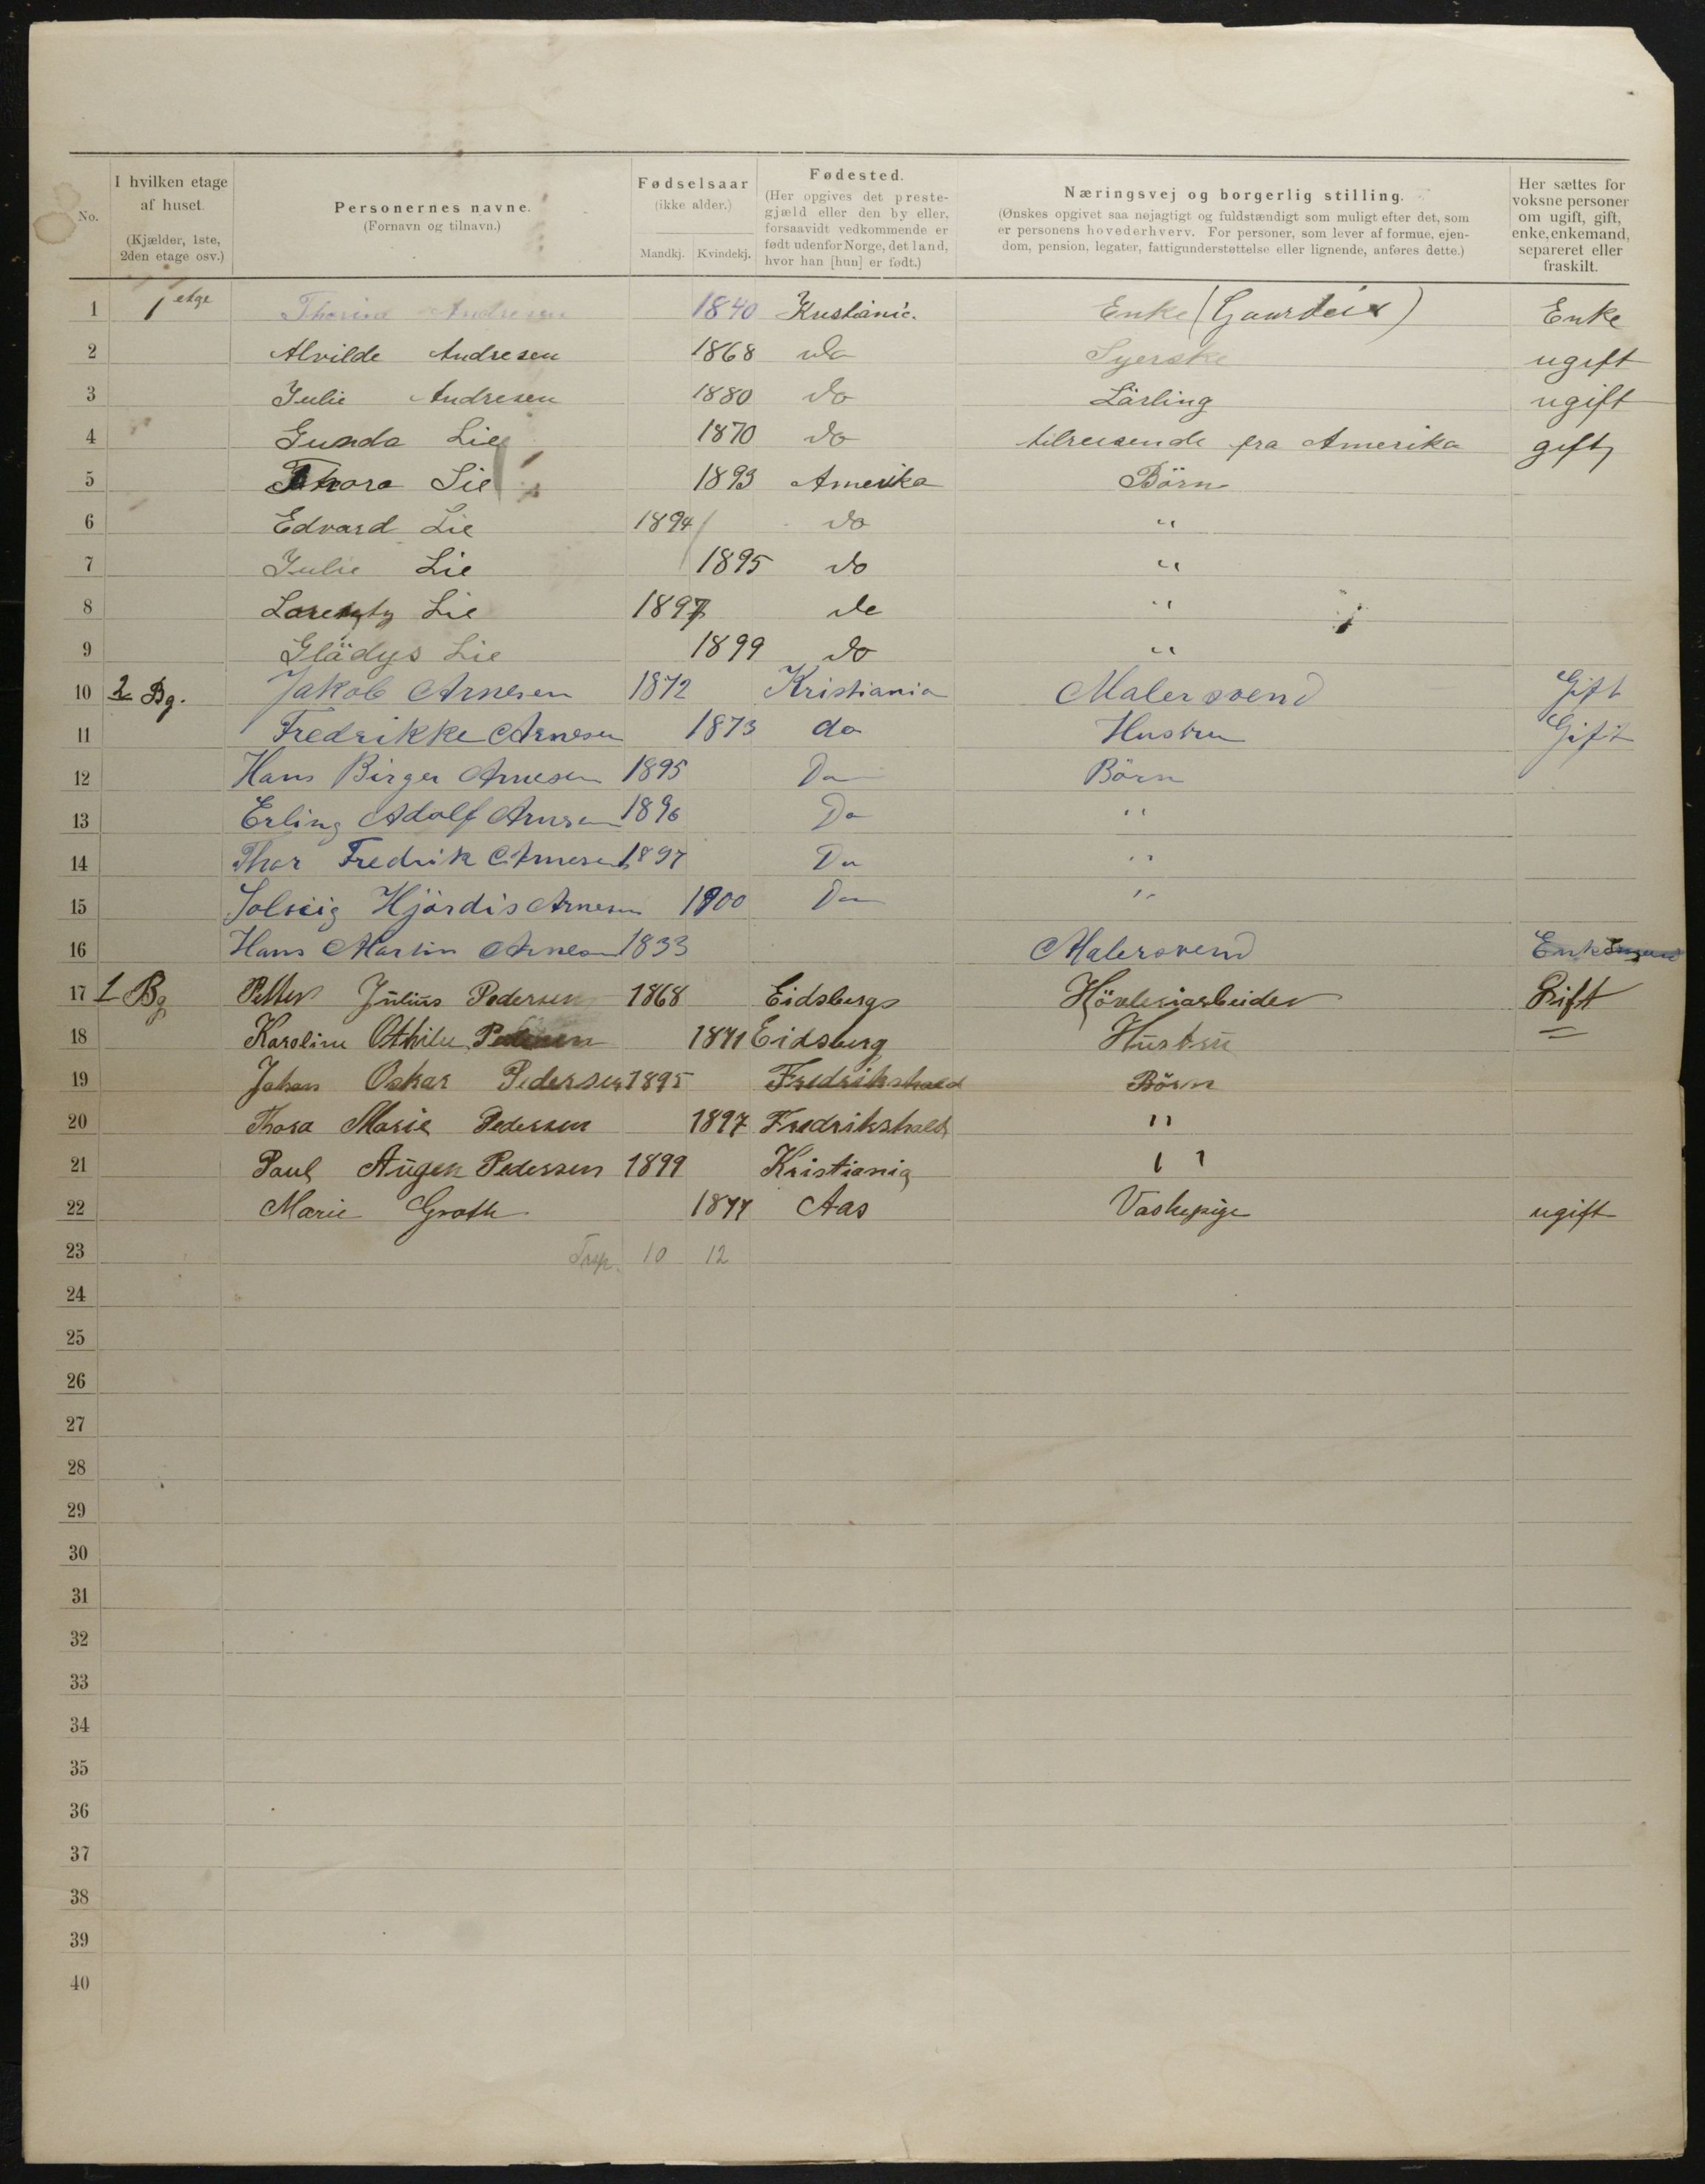 No. I hvilken etage af huset. (Kjælder, 1ste, 2den etage osv.) Personernes navne. (Fornavn og tilnavn.) Fødselsaar (ikke alder.) Mandkj. Kvindekj. Fødested. (Her opgives det prestegjæld eller den by eller, forsaavidt vedkommende er født udenfor Norge, det land, hvor han [hun] er født.) Næringsvej og borgerlig stilling. (Ønskes opgivet saa nøjagtigt og fuldstændigt som muligt efter det, som er personens hovederhverv. For personer, som lever af formue, ejendom, pension, legater, fattigunderstøttelse eller lignende, anføres dette.) Her sættes for voksne personer om ugift, gift, enke, enkemand, separeret eller fraskilt.
1 1 etge Andresen 1840 Kristiania Enke Enke
2 Alvilde Andresen 1868 do Syerske ugift
3 Julie Andresen 1880 do Lärling ugift
4 Gunda Lie 1870 do tilreisende fra Amerika gift
5 Thora Lie 1893 Amerika Börn
6 Edvard Lie 1894 do "
7 Julie Lie 1895 do "
8 Lie 1897 do "
9 Glädys Lie 1899 do "
10 2 Bg. Jakob Arnesen 1872 Kristiania Malersvend Gift
11 Fredrikke Arnesen 1873 do Hustru Gift
12 Hans Birger Arnesen 1895 Do Börn
13 Erling Adolf Arnesen 1896 Do "
14 Thor Fredrik Arnesen 1897 Do "
15 Solveig Hjördis Arnesen 1900 Do "
16 Hans Martin Arnesen 1833 Malersvend
17 1 Bg Petter Julius Pedersen 1868 Eidsberg Hövleriarbeider Gift
18 Karoline Othilie Pedersen 1871 Eidsberg Hustru =
19 Johan Oskar Pedersen 1895 Fredrikshald Börn
20 Thora Marie Pedersen 1897 Fredrikshald "
21 Paul Augen Pedersen 1899 Kristiania "
22 Marie Groth 1877 Aas Vaskepige ugift
23 10 12
24
25
26
27
28
29
30
31
32
33
34
35
36
37
38
39
40